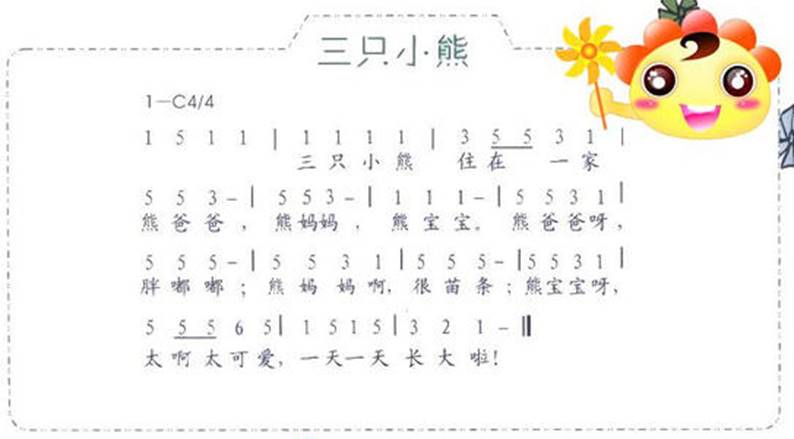 三只小熊
1—C4/4
1 5 1 1 | 1 1 1 1 | 3 5 5 3 1 |
三只小熊 住在 一家
5 5 3 – | 5 5 3 – | 1 1 1 – | 5 5 3 1 |
熊爸爸，熊妈妈，熊宝宝。熊爸爸呀，
5 5 5 – | 5 5 3 1 | 5 5 5 – | 5 5 3 1 |
胖嘟嘟；熊妈妈啊，很苗条；熊宝宝呀，
5 5 5 6 5 | 1 5 1 5 | 3 2 1 – ‖
太啊太可爱，一天一天长大啦！